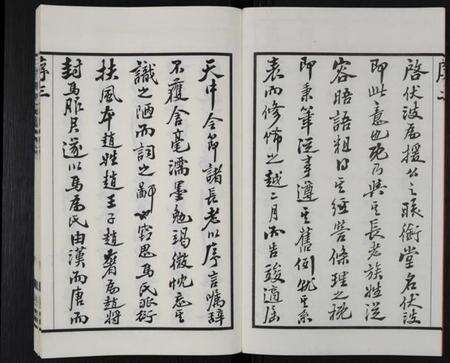 序二
啓伏波馬援公之銜堂名伏波
即此意也既而與其長老族姓從
容晤語粗得其經營條理之概
即秉筆從事遵其舊例就其系
表而修飾之越二月而告竣適屆
天中令節諸長老以序言囑辭
不獲含毫濡墨勉竭微忱忘其
識之陋而詞之鄙也竊思馬氏派衍
扶風本趙姓趙王子趙奢為趙將
封馬服君遂以馬為氏由漢而唐而
序三